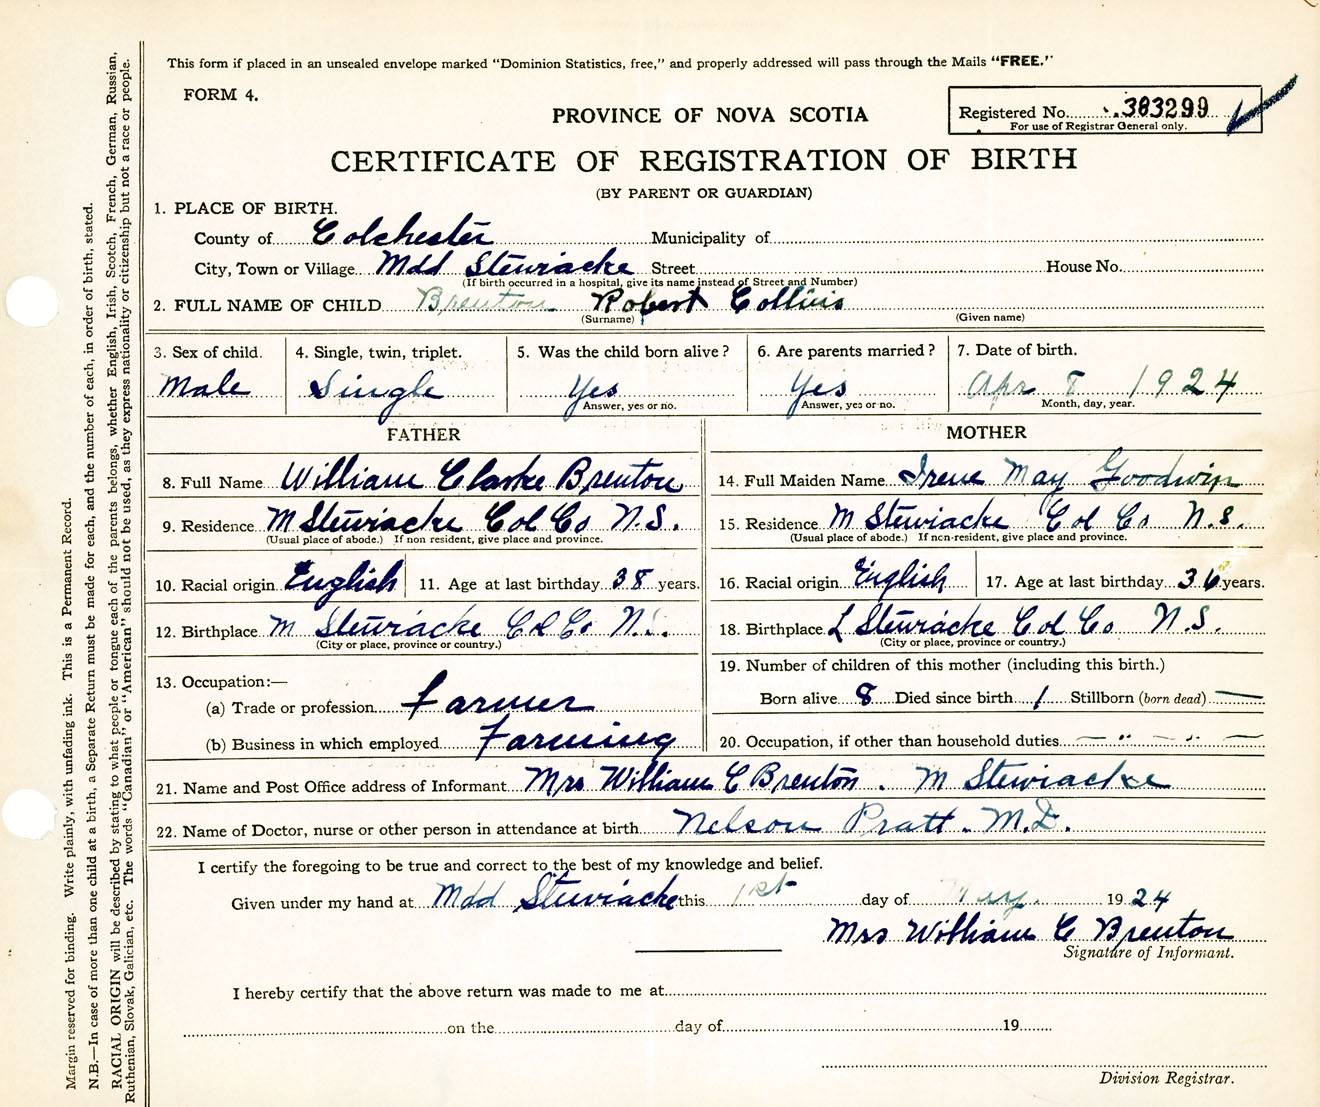 This form if placed in an unsealed envelope marked "Dominion Statistics, free," and properly addressed will pass through the Mails "FREE."
FORM 4.
PROVINCE OF NOVA SCOTIA
Registered No. 383299
For use of Registrar General only.
CERTIFICATE OF REGISTRATION OF BIRTH
(BY PARENT OR GUARDIAN)
1. PLACE OF BIRTH.
County of Colchester Municipality of
City, Town or Village Mdd Stewiacke Street House No.
(If birth occurred in a hospital, give its name instead of Street and Number)
2. FULL NAME OF CHILD Brenton Robert Collins
(Surname) (Given name)
3. Sex of child. 4. Single, twin, triplet. 5. Was the child born alive? 6. Are parents married? 7. Date of birth.
Male Single Yes Yes Apr 8 1924
Answer, yes or no. Answer, yes or no. Month, day, year.
FATHER MOTHER
8. Full Name William Clarke Brenton 14. Full Maiden Name Irene May Goodwin
9. Residence M Stewiacke Col Co N.S. 15. Residence M Stewiacke Col Co N.S.
(Usual place of abode.) If non resident, give place and province. (Usual place of abode.) If non-resident, give place and province.
10. Racial origin English 11. Age at last birthday 38 years. 16. Racial origin English 17. Age at last birthday 36 years.
12. Birthplace M Stewiacke Col Co N.S. 18. Birthplace L Stewiacke Col Co N.S.
(City or place, province or country.) (City or place, province or country.)
19. Number of children of this mother (including this birth.)
13. Occupation:—
(a) Trade or profession Farmer Born alive 8 Died since birth 1 Stillborn (born dead) —
(b) Business in which employed Farming 20. Occupation, if other than household duties — " — " —
21. Name and Post Office address of Informant Mrs William C Brenton. M Stewiacke
22. Name of Doctor, nurse or other person in attendance at birth Nelson Pratt. M.D.
I certify the foregoing to be true and correct to the best of my knowledge and belief.
Given under my hand at Mdd Stewiacke this 1st day of May. 1924
Mrs William C Brenton
Signature of Informant.
I hereby certify that the above return was made to me at
on the day of 19
Division Registrar.
Margin reserved for binding. Write plainly, with unfading ink. This is a Permanent Record.
N.B.—In case of more than one child at a birth, a Separate Return must be made for each, and the number of each, in order of birth, stated.
RACIAL ORIGIN will be described by stating to what people or tongue each of the parents belongs, whether English, Irish, Scotch, French, German, Russian,
Ruthenian, Slovak, Galician, etc. The words "Canadian" or "American" should not be used, as they express nationality or citizenship but not a race or people.